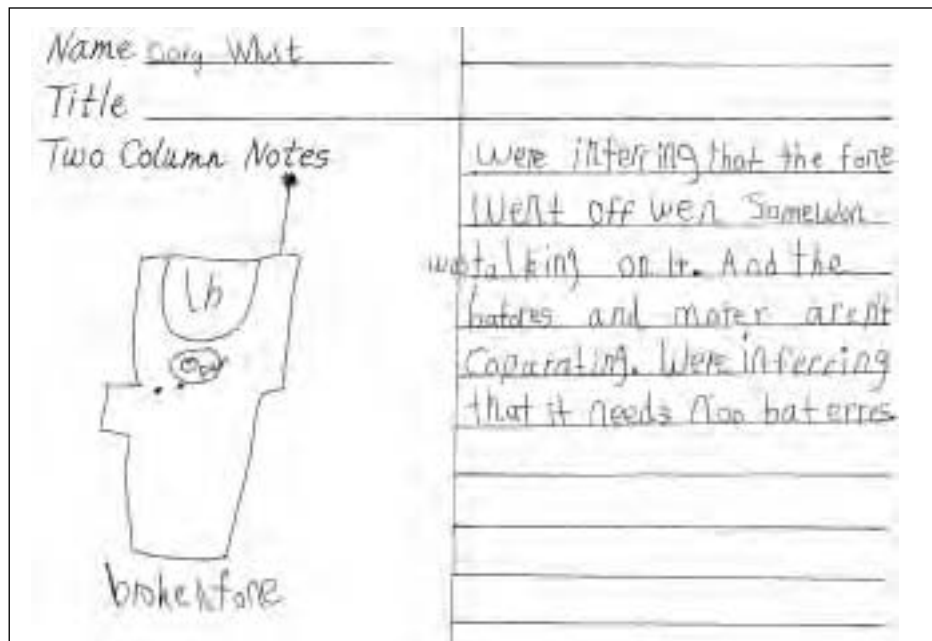 Name
Title
Two Column Notes
were inferring that the fone
Went off wen Somewon
was talking on it. And the
batores and moter arent
Coparating. Were inferring
that it needs noo baterres
broken fone